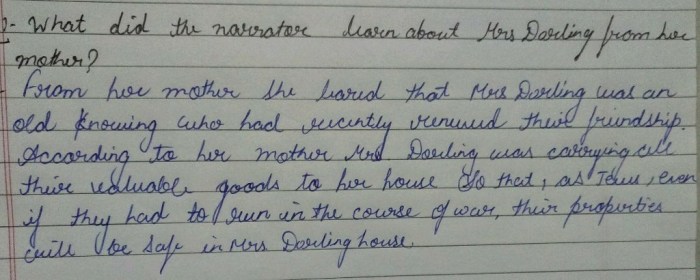 Q- What did the narrator learn about Mrs Dorling from her
mother?
From her mother she hared that Mrs Dorling was an
old knowing who had recently renewed their friendship.
According to her mother Mrs Dorling was carrying all
their valuable goods to her house so that, as Jews, even
if they had to run in the course of war, their properties
will be safe in Mrs Dorling house.